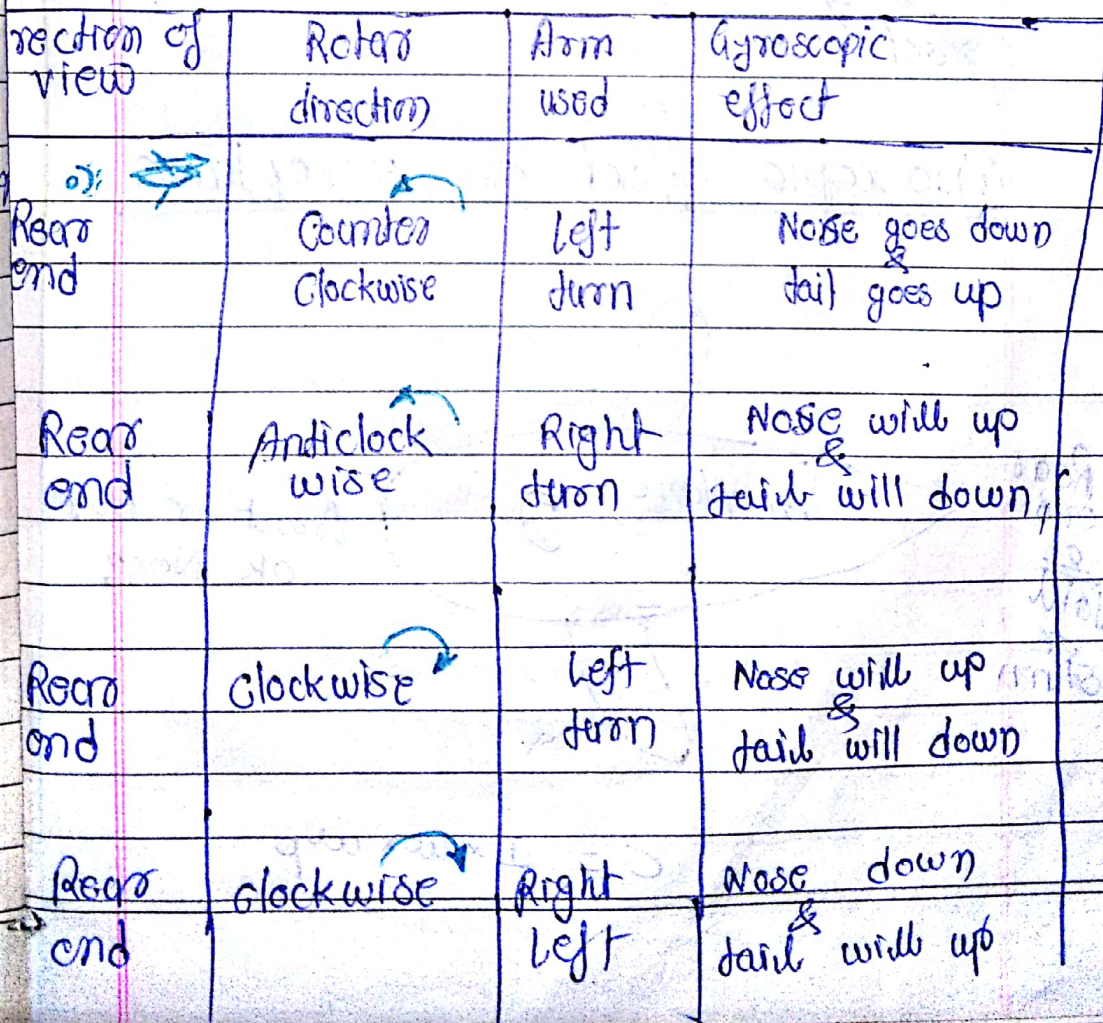 rection of view | Rotar direction | Arm used | Gyroscopic effect
Rear end | Counter Clockwise | Left turn | Nose goes down & tail goes up
Rear end | Anticlock wise | Right turn | Nose will up & tail will down,
Rear end | Clockwise | Left turn | Nose will up & tail will down
Rear end | Clockwise | Right Left | Nose down & tail will up